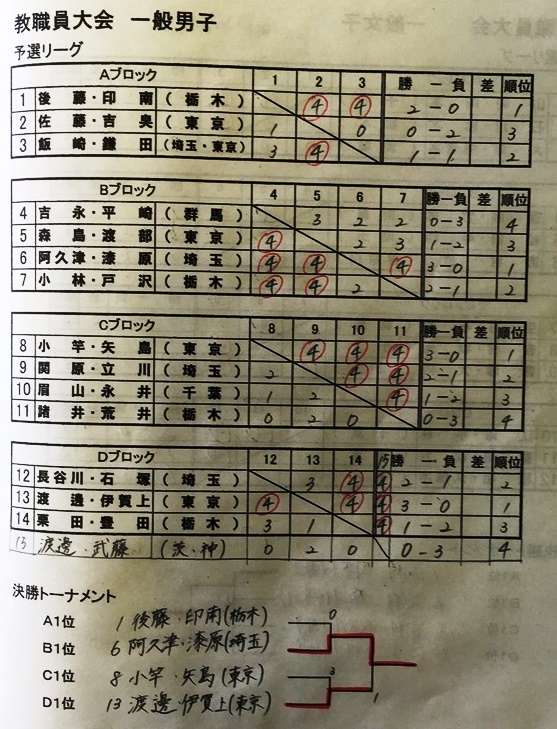 教職員大会　一般男子
予選リーグ
Aブロック 1 2 3 勝ー負 差 順位
1 後藤・印南 (栃木) ④ ④ 2-0 1
2 佐藤・吉臭 (東京) 1 0 0-2 3
3 飯崎・鎌田 (埼玉・東京) 3 ④ 1-1 2
Bブロック 4 5 6 7 勝ー負 差 順位
4 吉永・平崎 (群馬) 3 2 2 0-3 4
5 森島・渡部 (東京) ④ 2 3 1-2 3
6 阿久津・漆原 (埼玉) ④ ④ ④ 3-0 1
7 小林・戸沢 (栃木) ④ ④ 2 2-1 2
Cブロック 8 9 10 11 勝ー負 差 順位
8 小竿・矢島 (東京) ④ ④ ④ 3-0 1
9 関原・立川 (埼玉) 2 ④ ④ 2-1 2
10 眉山・永井 (千葉) 1 2 ④ 1-2 3
11 諸井・荒井 (栃木) 0 2 0 0-3 4
Dブロック 12 13 14 15 勝ー負 差 順位
12 長谷川・石塚 (埼玉) 3 ④ ④ 2-1 2
13 渡邉・伊賀上 (東京) ④ ④ ④ 3-0 1
14 栗田・豊田 (栃木) 3 1 ④ 1-2 3
15 渡邉・武藤 (茨・神) 0 2 0 0-3 4
決勝トーナメント
A1位 1 後藤・印南(栃木) 0
B1位 6 阿久津・漆原(埼玉)
C1位 8 小竿・矢島(東京) 3
D1位 13 渡邉・伊賀上(東京) 1